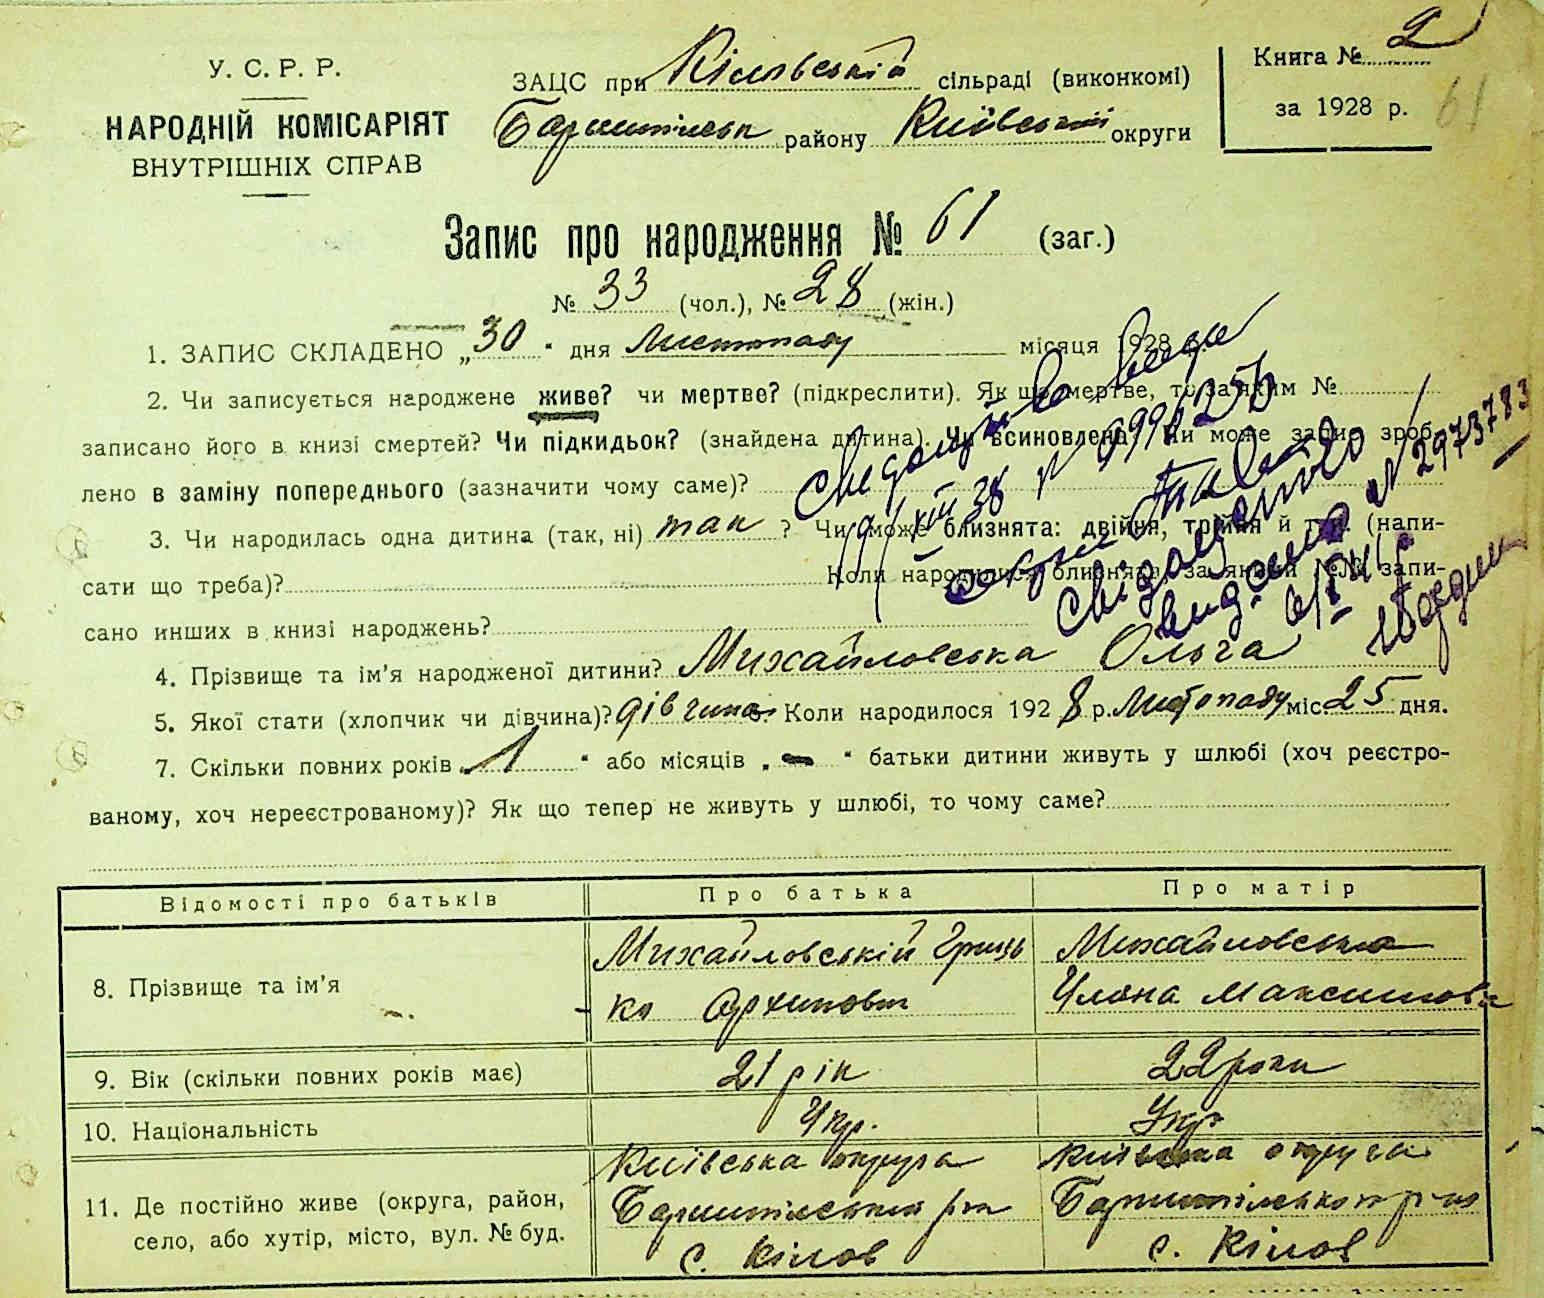 У. С. Р. Р.
НАРОДНІЙ КОМІСАРІЯТ
ВНУТРІШНІХ СПРАВ
ЗАЦС при Кілівській сільраді (виконкомі)
району Київської округи
Книга № 2
за 1928 р. 61
Запис про народження № 61 (заг.)
№ 33 (чол.), № 28 (жін.)
1. ЗАПИС СКЛАДЕНО „30“ дня Листопаду місяця 1928 р.
2. Чи записується народжене живе? чи мертве? (підкреслити). Як що мертве, то за яким №
записано його в книзі смертей? Чи підкидьок? (знайдена дитина). Чи всиновлена? Чи може запис зроб-
лено в заміну попереднього (зазначити чому саме)?
3. Чи народилась одна дитина (так, ні) так ? Чи може близнята: двійня, трійня й т. п. (напи-
сати що треба)? Коли народилися близнята, за якими №№ запи-
сано инших в книзі народжень?
4. Прізвище та ім’я народженої дитини? Михайловська Ольга
5. Якої стати (хлопчик чи дівчина)? дівчина 6. Коли народилося 1928 р. Листопаду міс. 25 дня.
7. Скільки повних років „1“ або місяців „-“ батьки дитини живуть у шлюбі (хоч реєстро-
ваному, хоч нереєстрованому)? Як що тепер не живуть у шлюбі, то чому саме?
№ 2973783
Відомості про батьків Про батька Про матір
8. Прізвище та ім’я
Михайловській Гриць
ко Архипович
Михайловська
Уляна Максимовн
9. Вік (скільки повних років має) 21 рік 22 роки
10. Національність Укр. Укр.
11. Де постійно живе (округа, район,
село, або хутір, місто, вул. № буд.
Київська округа
Бориспільський р-н
с. Кілов
Київська округа
р-н
с. Кілов